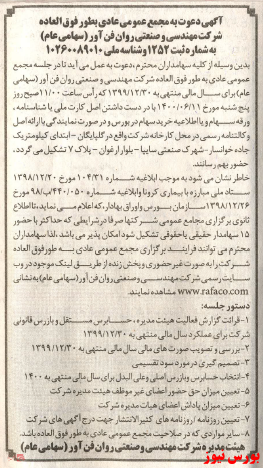 آگهی دعوت به مجمع عمومی عادی بطور فوق العاده
شرکت مهندسی و صنعتی روان فن آور (سهامی عام)
به شماره ثبت ۱۲۵۲ و شناسه ملی ۱۰۲۶۰۰۸۹۰۱۰
بدین وسیله از کلیه سهامداران محترم، دعوت به عمل می آید تا در جلسه مجمع
عمومی عادی به طور فوق العاده شرکت مهندسی و صنعتی روان فن آور (سهامی
عام) برای سال مالی منتهی به ۱۳۹۹/۱۲/۳۰ که رأس ساعت ۱۱/۰۰ صبح روز
پنج شنبه مورخ ۱۴۰۰/۰۶/۱۱ با در دست داشتن اصل کارت ملی یا شناسنامه،
ورقه سهام و یا اطلاعیه خرید سهام در بورس و در صورت نمایندگی با ارائه اصل
وکالتنامه رسمی در محل کارخانه شرکت واقع در گلپایگان - ابتدای کیلومتر یک
جاده خوانسار - شهرک صنعتی سایپا - بلوار ارغوان - پلاک ۷ تشکیل می گردد،
حضور بهم رسانند.
خاطر نشان می شود به موجب ابلاغیه شماره ۱۰۴/۳۱ مورخ ۱۳۹۸/۱۲/۲۰
ستاد ملی مبارزه با بیماری کرونا و ابلاغیه شماره ۴۴۰/۰۵۰/ب۹۸ مورخ
۱۳۹۸/۱۲/۲۶ سازمان بورس و اوراق بهادار، که اعلام می نماید، تا اطلاع
ثانوی برگزاری مجامع عمومی شرکتها صرفا در شرایطی که حداکثر با حضور
۱۵ سهامدار حقیقی یا حقوقی تشکیل شود امکان پذیر می باشد، لذا سهامداران
محترم می توانند فرایند برگزاری مجمع عمومی عادی به طور فوق العاده
شرکت را به صورت غیر حضوری و پخش زنده از طریق لینک موجود در وب
سایت رسمی شرکت مهندسی و صنعتی روان فن آور (سهامی عام) به نشانی
www.rafaco.com مشاهده نمایند.
دستور جلسه:
۱- قرائت گزارش فعالیت هیئت مدیره، حسابرس مستقل و بازرس قانونی
شرکت برای عملکرد سال مالی منتهی به ۱۳۹۹/۱۲/۳۰
۲- بررسی و تصویب صورت های مالی سال مالی منتهی به ۱۳۹۹/۱۲/۳۰
۳- تصمیم گیری در مورد سود تقسیمی
۴- انتخاب حسابرس و بازرس اصلی و علی البدل برای سال مالی منتهی به ۱۴۰۰
۵- تعیین میزان حق حضور اعضای غیر موظف هیئت مدیره شرکت
۶- تعیین میزان پاداش اعضای هیات مدیره شرکت
۷- تعیین روزنامه / روزنامه های کثیرالانتشار جهت درج آگهی های شرکت
۸- سایر مواردی که در صلاحیت مجمع عمومی عادی به طور فوق العاده باشد.
هیئت مدیره شرکت مهندسی و صنعتی روان فن آور (سهامی عام)
بورس نیوز